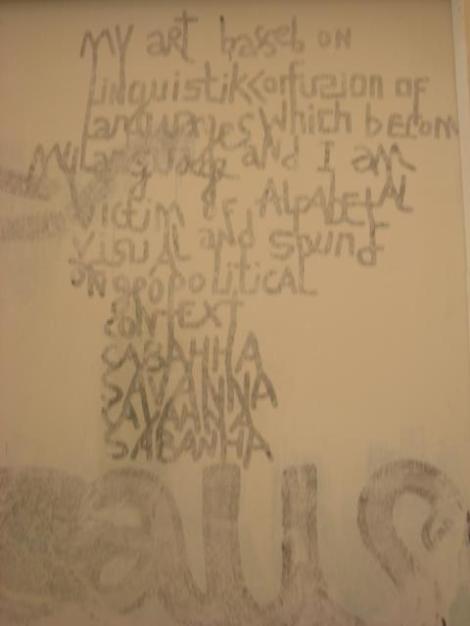 My art basseb on
LinguistikConfuzion of
Languages Which becom
My Language and I am
Victim of ALPABETAL
Visual and Sound
on geopolitical
CONTEXT
SABAHHA
SAVANNA
SAVAHNA
SABAHHA
aus